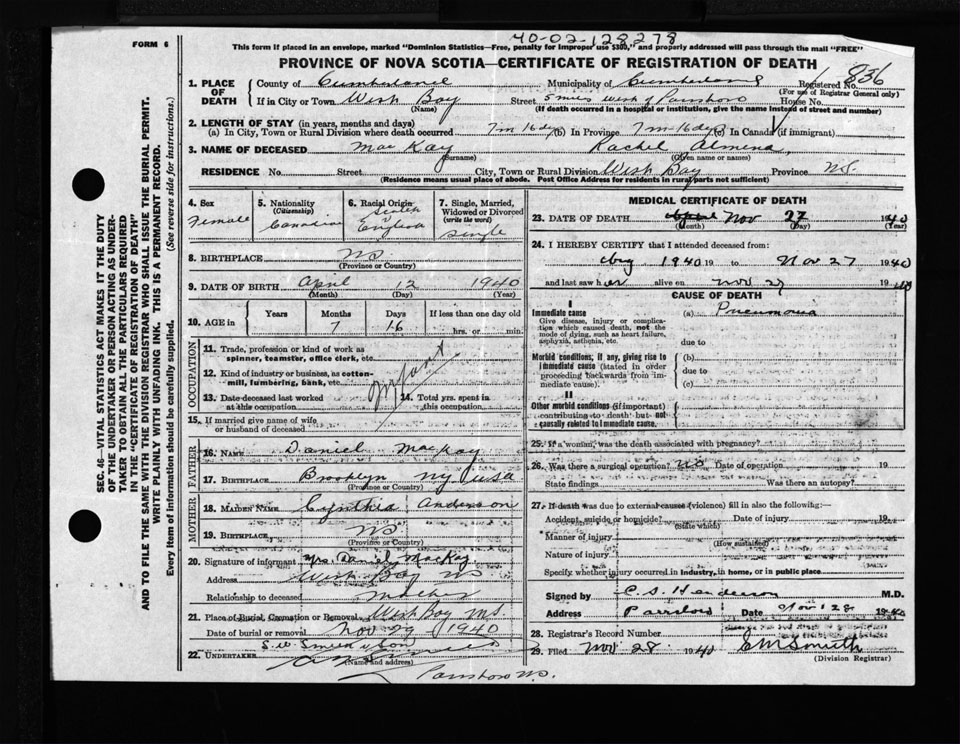 40-02-128278
FORM 6
This form if placed in an envelope, marked "Dominion Statistics—Free, penalty for improper use $300," and properly addressed will pass through the mail "FREE"
PROVINCE OF NOVA SCOTIA—CERTIFICATE OF REGISTRATION OF DEATH
SEC. 46—VITAL STATISTICS ACT MAKES IT THE DUTY
OF THE UNDERTAKER OR PERSON ACTING AS UNDER-
TAKER TO OBTAIN ALL THE PARTICULARS REQUIRED
IN THE "CERTIFICATE OF REGISTRATION OF DEATH"
AND TO FILE THE SAME WITH THE DIVISION REGISTRAR WHO SHALL ISSUE THE BURIAL PERMIT.
WRITE PLAINLY WITH UNFADING INK. THIS IS A PERMANENT RECORD.
Every item of information should be carefully supplied. (See reverse side for instructions.)
1. PLACE OF DEATH County of Cumberland Municipality of Cumberland Registered No. 836
(For use of Registrar General only)
If in City or Town West Bay Street 5 miles West of Parrsboro House No.
(Name) (If death occurred in a hospital or institution, give the name instead of street and number)
2. LENGTH OF STAY (in years, months and days)
(a) In City, Town or Rural Division where death occurred 7m 16 dys (b) In Province 7m-16 dys (c) In Canada (if immigrant)
3. NAME OF DECEASED MacKay Rachel Almena
(Surname) (Given name or names)
RESIDENCE No. Street City, Town or Rural Division West Bay Province N.S.
(Residence means usual place of abode. Post Office Address for residents in rural parts not sufficient)
4. Sex Female
5. Nationality (Citizenship) Canadian
6. Racial Origin Scotch English
7. Single, Married, Widowed or Divorced (write the word) Single
8. BIRTHPLACE N.S.
(Province or Country)
9. DATE OF BIRTH April 12 1940
(Month) (Day) (Year)
10. AGE in Years Months 7 Days 16 If less than one day old hrs. or min.
OCCUPATION
11. Trade, profession or kind of work as spinner, teamster, office clerk, etc.
12. Kind of industry or business, as cotton-mill, lumbering, bank, etc.
Infant
13. Date deceased last worked at this occupation 14. Total yrs. spent in this occupation
15. If married give name of wife or husband of deceased
FATHER
16. NAME Daniel MacKay
17. BIRTHPLACE Brooklyn N.Y. USA
(Province or Country)
MOTHER
18. MAIDEN NAME Cynthia Anderson
19. BIRTHPLACE N.S.
(Province or Country)
20. Signature of informant Mrs. Daniel MacKay
Address West Bay N.S.
Relationship to deceased Mother
21. Place of Burial, Cremation or Removal West Bay N.S.
Date of burial or removal Nov 29 1940
22. UNDERTAKER S.W. Smith & Son
(Name and address)
Parrsboro N.S.
MEDICAL CERTIFICATE OF DEATH
23. DATE OF DEATH Nov 27 1940
(Month) (Day) (Year)
24. I HEREBY CERTIFY that I attended deceased from:
Aug 1940 19 to Nov 27 1940
and last saw her alive on Nov 27 1940
CAUSE OF DEATH
I
Immediate cause (a) Pneumonia
Give disease, injury or complication which caused death, not the mode of dying, such as heart failure, asphyxia, asthenia, etc.
due to
Morbid conditions, if any, giving rise to immediate cause (stated in order proceeding backwards from immediate cause). (b)
due to
(c)
II
Other morbid conditions (if important) contributing to death but not causally related to immediate cause.
25. If a woman, was the death associated with pregnancy?
26. Was there a surgical operation? no Date of operation 19
State findings Was there an autopsy?
27. If death was due to external causes (violence) fill in also the following:
Accident, suicide or homicide? Date of injury 19
(State which)
Manner of injury
(How sustained)
Nature of injury
Specify whether injury occurred in industry, in home, or in public place
Signed by C.S. Henderson M.D.
Address Parrsboro Date Nov 28 1940
28. Registrar's Record Number
29. Filed Nov. 28 1940 E M Smith
(Division Registrar)